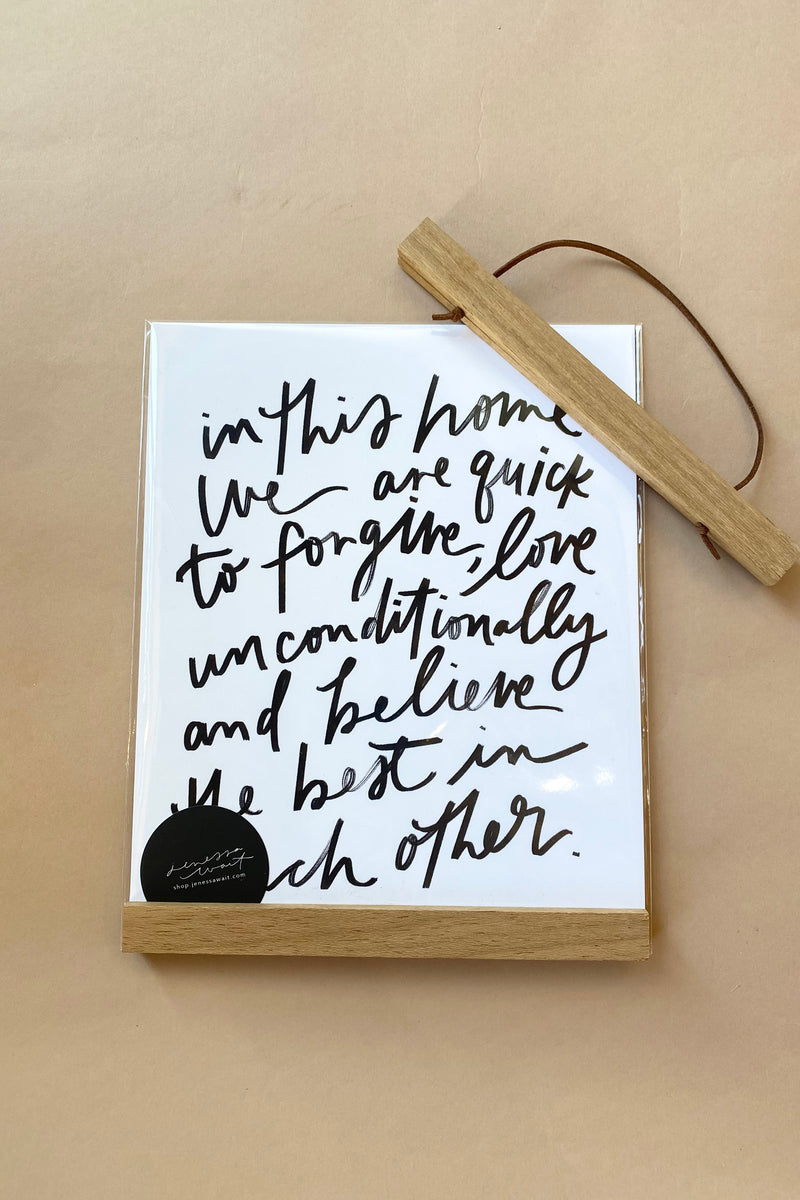 in this home
we are quick
to forgive, love
unconditionally
and believe
the best in
ch other.
jenessa
wait
shop.jenessawait.com